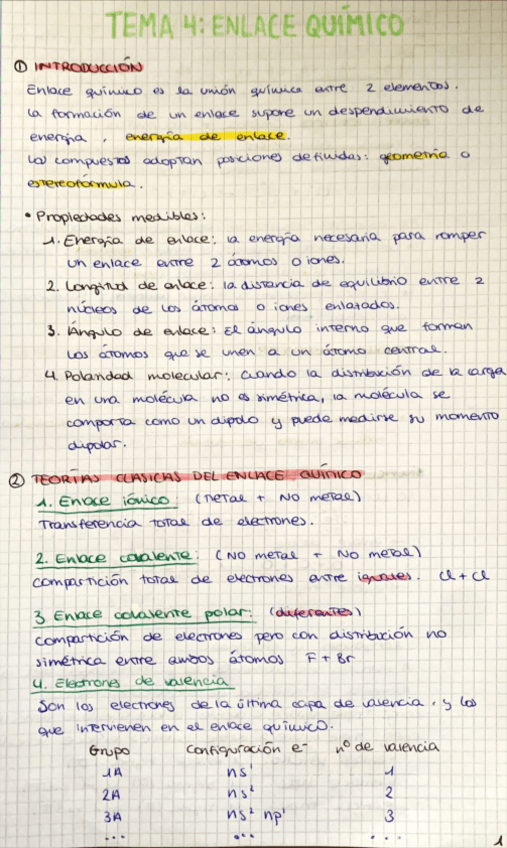 TEMA 4: ENLACE QUÍMICO
① INTRODUCCIÓN
Enlace químico es la unión química entre 2 elementos.
La formación de un enlace supone un despendimiento de
energía, energía de enlace.
Los compuestos adoptan posiciones definidas: geometría o
estereofórmula.
• Propiedades medibles:
1. Energía de enlace: la energía necesaria para romper
un enlace entre 2 átomos o iones.
2. Longitud de enlace: la distancia de equilibrio entre 2
núcleos de los átomos o iones enlazados.
3. Ángulo de enlace: El ángulo interno que forman
los átomos que se unen a un átomo central.
4. Polaridad molecular: Cuando la distribución de la carga
en una molécula no es simétrica, la molécula se
comporta como un dipolo y puede medirse su momento
dipolar.
② TEORÍAS CLASICAS DEL ENLACE QUÍMICO
1. Enlace iónico (metal + No metal)
Transferencia total de electrones.
2. Enlace covalente: (No metal + No metal)
compartición total de electrones entre iguales. Cl + Cl
3 Enlace covalente polar: (diferentes)
compartición de electrones pero con distribución no
simétrica entre ambos átomos F + Br
4. Electrones de valencia
Son los electrones de la última capa de valencia, y los
que intervienen en el enlace químico.
Grupo Configuración e⁻ nº de valencia
1A ns¹ 1
2A ns² 2
3A ns² np¹ 3
... ... ...
1